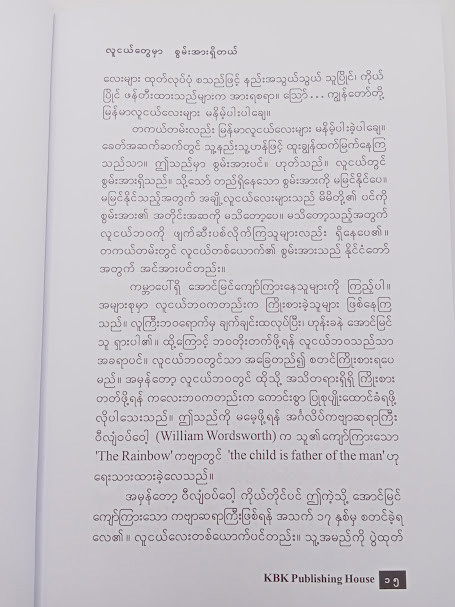 လူငယ်တွေမှာ စွမ်းအားရှိတယ်
လေးများ ထုတ်လုပ်ပုံ စသည်ဖြင့် နည်းအသွယ်သွယ် သူပြိုင်၊ ကိုယ်
ပြိုင် ဖန်တီးထားသည်များက အားရစရာ။ သြော် ... ကျွန်တော်တို့
မြန်မာလူငယ်လေးများ မနိမ့်ပါးပါချေ။
တကယ်တမ်းလည်း မြန်မာလူငယ်လေးများ မနိမ့်ပါးခဲ့ပါချေ။
ခေတ်အဆက်ဆက်တွင် သူ့နည်းသူ့ဟန်ဖြင့် ထူးချွန်ထက်မြက်နေကြ
သည်သာ။ ဤသည်မှာ စွမ်းအားပင်။ ဟုတ်သည်။ လူငယ်တွင်
စွမ်းအားရှိသည်။ သို့သော် တည်ရှိနေသော စွမ်းအားကို မမြင်နိုင်ပေ။
မမြင်နိုင်သည့်အတွက် အချို့လူငယ်လေးများသည် မိမိတို့၏ ပင်ကို
စွမ်းအား၏ အတိုင်းအဆကို မသိတော့ပေ။ မသိတော့သည့်အတွက်
လူငယ်ဘဝကို ဖျက်ဆီးပစ်လိုက်ကြသူများလည်း ရှိနေပေ၏။
တကယ်တမ်းတွင် လူငယ်တစ်ယောက်၏ စွမ်းအားသည် နိုင်ငံတော်
အတွက် အင်အားပင်တည်း။
ကမ္ဘာပေါ်ရှိ အောင်မြင်ကျော်ကြားနေသူများကို ကြည့်ပါ။
အများစုမှာ လူငယ်ဘဝကတည်းက ကြိုးစားခဲ့သူများ ဖြစ်နေကြ
သည်။ လူကြီးဘဝရောက်မှ ချက်ချင်းထလုပ်ပြီး၊ ဟုန်းခနဲ အောင်မြင်
သူ ရှားပါ၏။ ထို့ကြောင့် ဘဝတိုးတက်ဖို့ရန် လူငယ်ဘဝသည်သာ
အခရာပင်။ လူငယ်ဘဝတွင်သာ အခြေတည်၍ စတင်ကြိုးစားရပေ
မည်။ အမှန်တော့ လူငယ်ဘဝတွင် ထိုသို့ အသိတရားရှိရှိ ကြိုးစား
တတ်ဖို့ရန် ကလေးဘဝကတည်းက ကောင်းစွာ ပြုစုပျိုးထောင်ခံရဖို့
လိုပါသေးသည်။ ဤသည်ကို မမေ့ဖို့ရန် အင်္ဂလိပ်ကဗျာဆရာကြီး
ဝီလျံဝပ်ဝေါ့ (William Wordsworth) က သူ၏ကျော်ကြားသော
'The Rainbow' ကဗျာတွင် 'the child is father of the man' ဟု
ရေးသားထားခဲ့လေသည်။
အမှန်တော့ ဝီလျံဝပ်ဝေါ့ ကိုယ်တိုင်ပင် ဤကဲ့သို့ အောင်မြင်
ကျော်ကြားသော ကဗျာဆရာကြီးဖြစ်ရန် အသက် ၁၇ နှစ်မှ စတင်ခဲ့ရ
လေ၏။ လူငယ်လေးတစ်ယောက်ပင်တည်း။ သူ့အမည်ကို ပွဲထုတ်
KBK Publishing House ၁၅